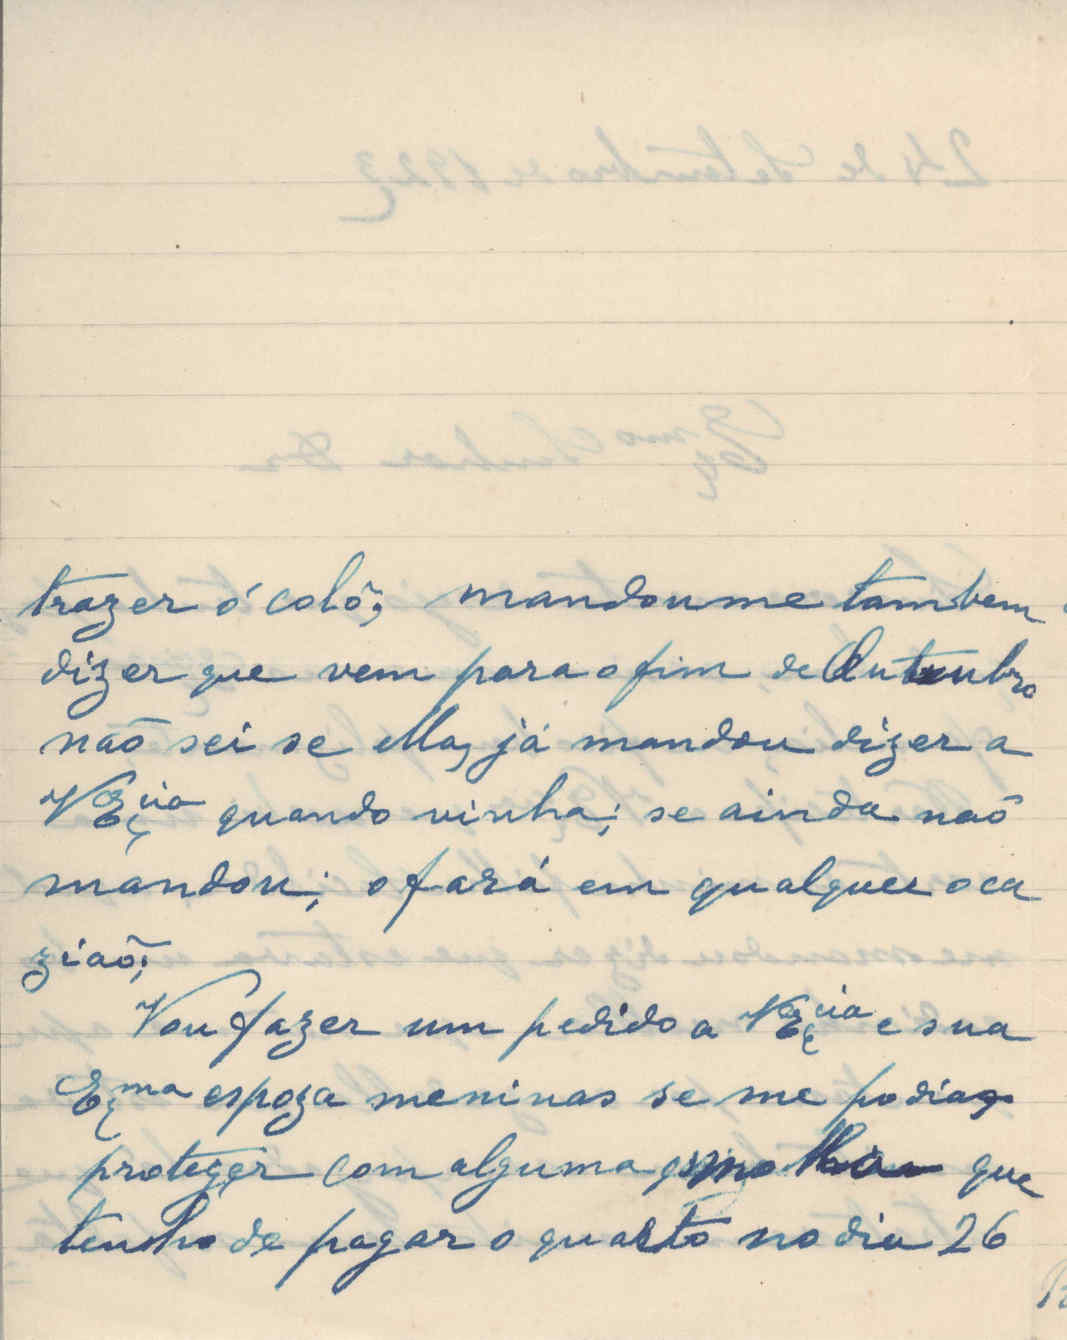 trazer ó colô; mandoume tambem
dizer que vem para o fim, de Outubro
naõ sei se ella, já mandou dizer a
VExcia quando vinha; se ainda naõ
mandou; o fará em qualquer oca
ziaõ;
Vou fazer um pedido a VExcia e sua
Exma espoza meninas se me podiaõ
proteger com alguma que
tenho de pagar o quarto no dia 26